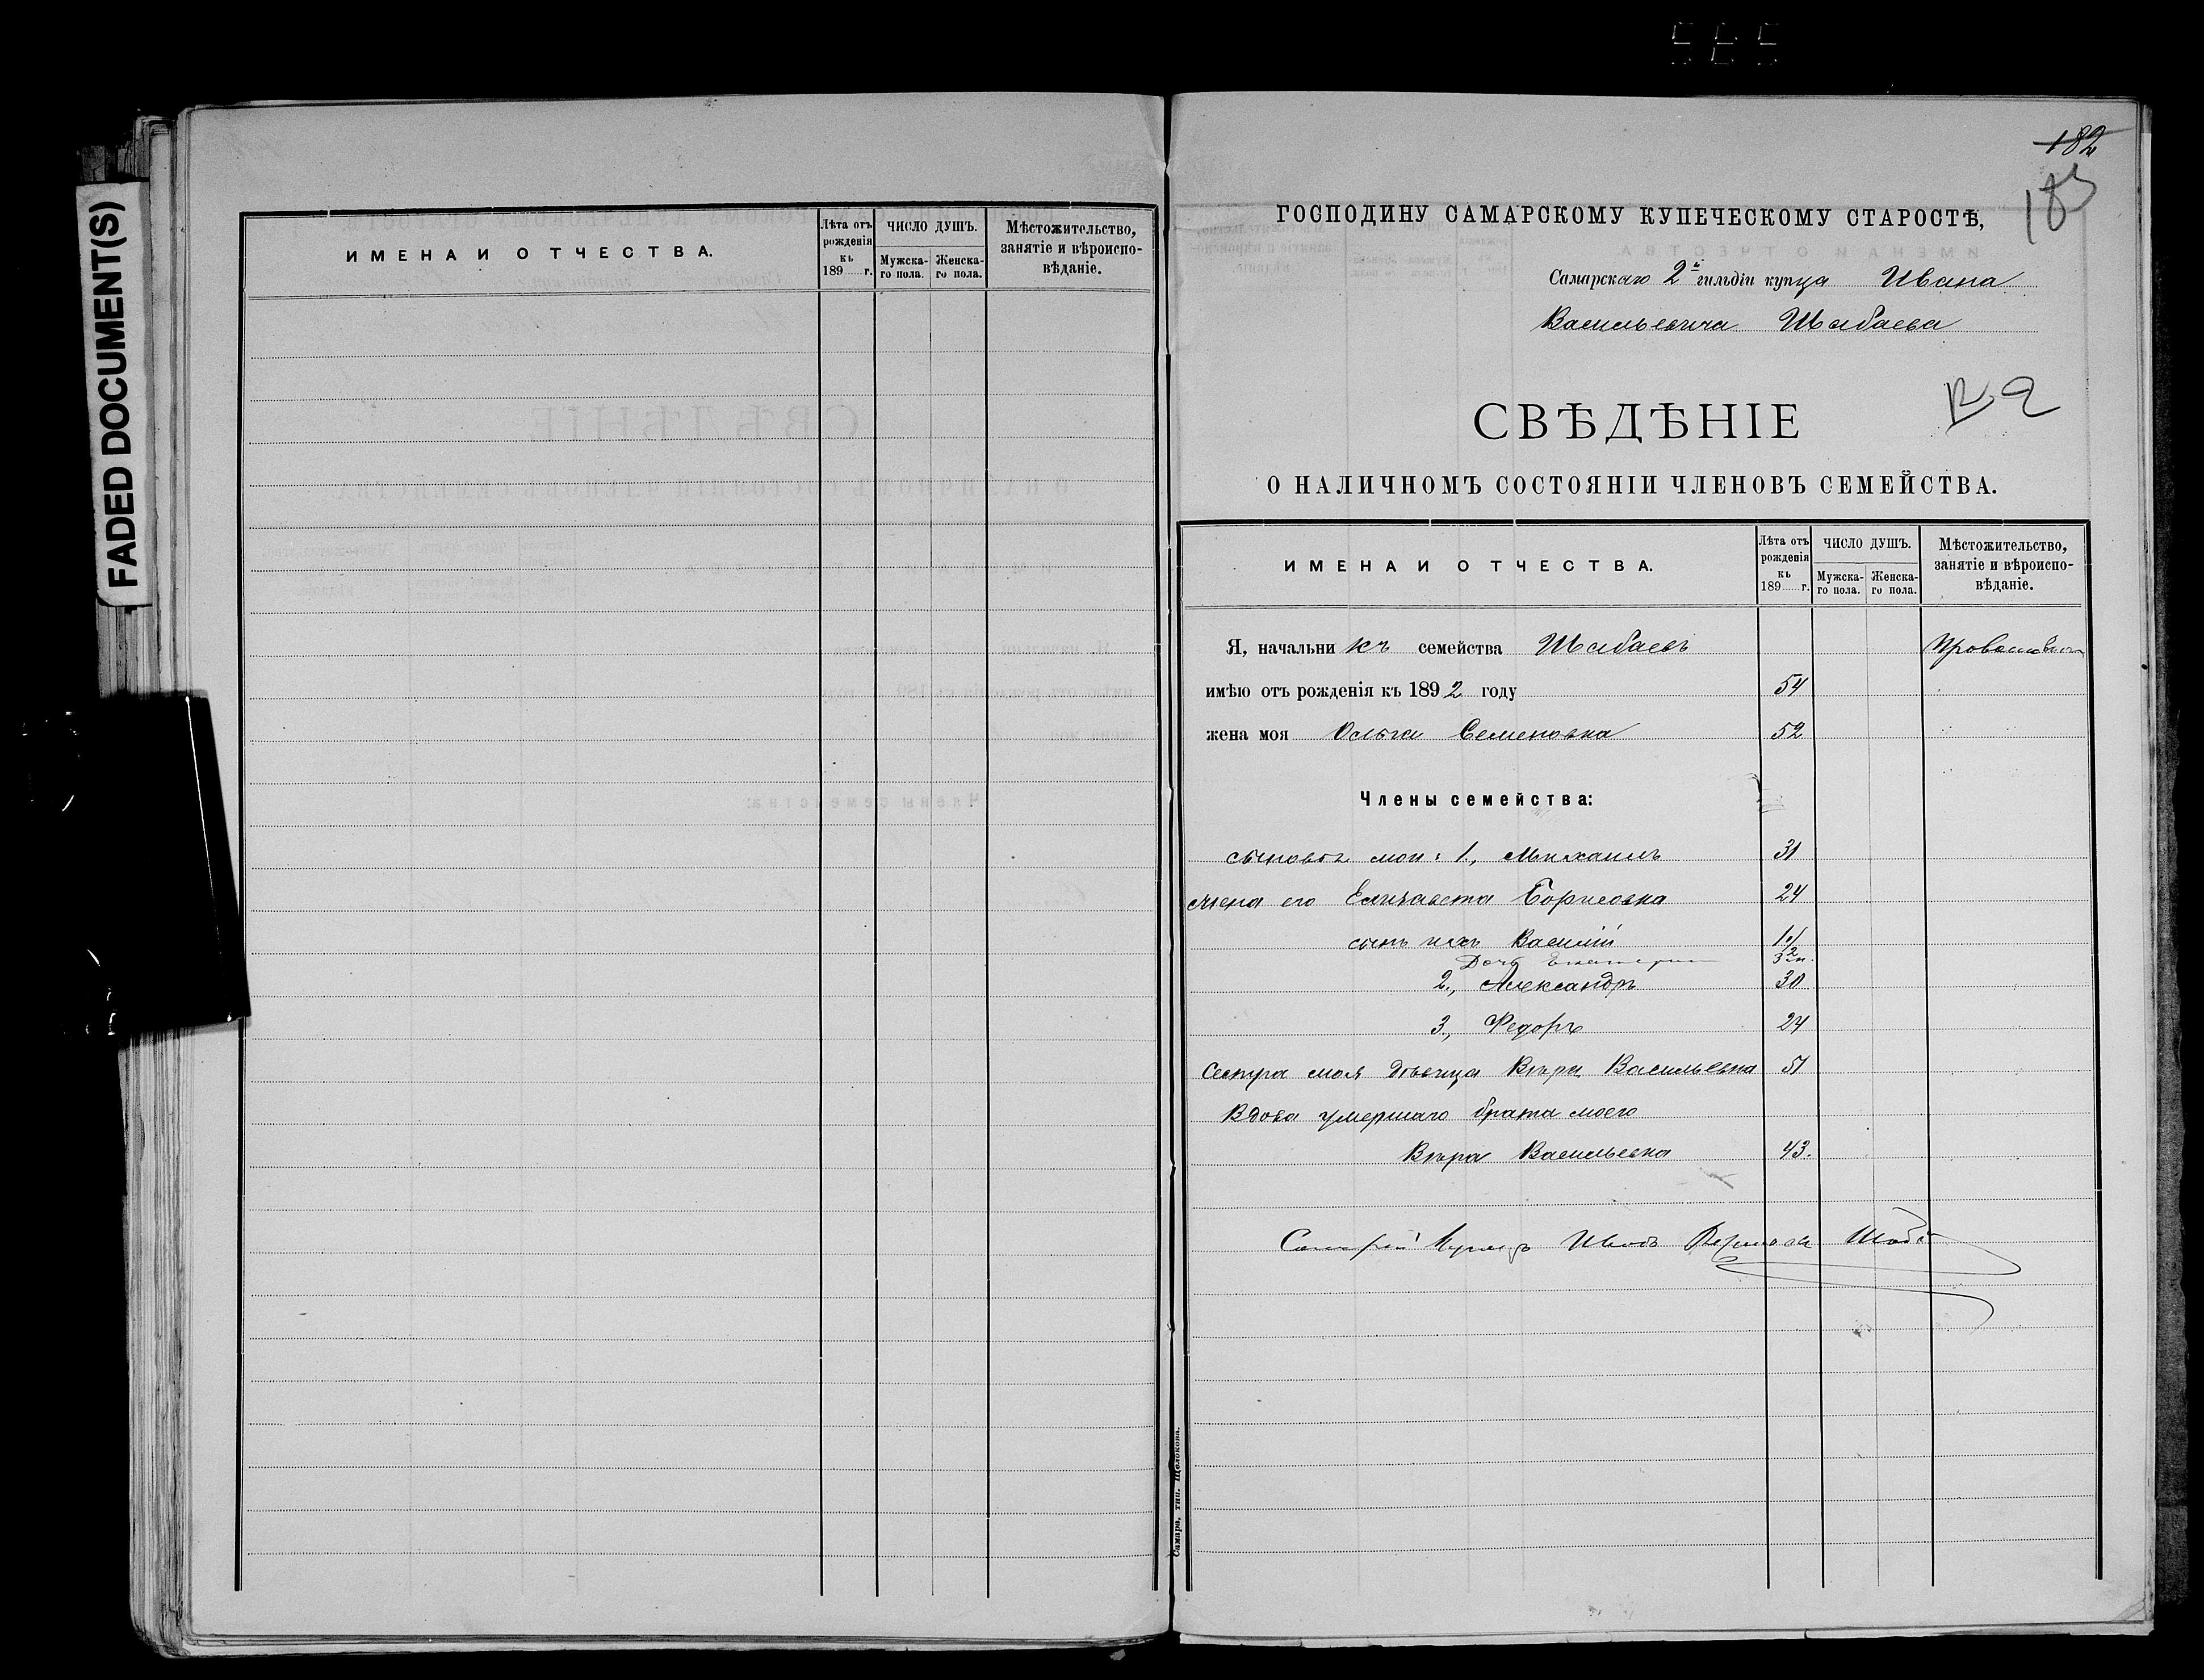 FADED DOCUMENT(S)
ИМЕНА И ОТЧЕСТВА.
Лѣта отъ рожденія къ 189 г.
ЧИСЛО ДУШЪ.
Мужска-го пола.
Женска-го пола.
Мѣстожительство, занятіе и вѣроиспо-вѣданіе.
182
183
ГОСПОДИНУ САМАРСКОМУ КУПЕЧЕСКОМУ СТАРОСТѢ,
Самарскаго 2й гильдіи купца Ивана
Васильевича Шабаева
СВѢДѢНІЕ
О НАЛИЧНОМЪ СОСТОЯНІИ ЧЛЕНОВЪ СЕМЕЙСТВА.
ИМЕНА И ОТЧЕСТВА.
Лѣта отъ рожденія къ 189 г.
ЧИСЛО ДУШЪ.
Мужска-го пола.
Женска-го пола.
Мѣстожительство, занятіе и вѣроиспо-вѣданіе.
Я, начальникъ семейства Шабаевъ
имѣю отъ рожденія къ 1892 году 54
жена моя Ольга Семеновна 52
Члены семейства:
сыновья мои: 1., Михаилъ 31
жена его Елизавета Борисовна 24
сынъ ихъ Василій 1 1/2
Дочь 3 м.
2., Александръ 30
3., Федоръ 24
Сестра моя дѣвица Вѣра Васильевна 51
Вдова умершаго брата моего
Вѣра Васильевна 43.
Купецъ Иванъ
Самара, тип. Щелокова.